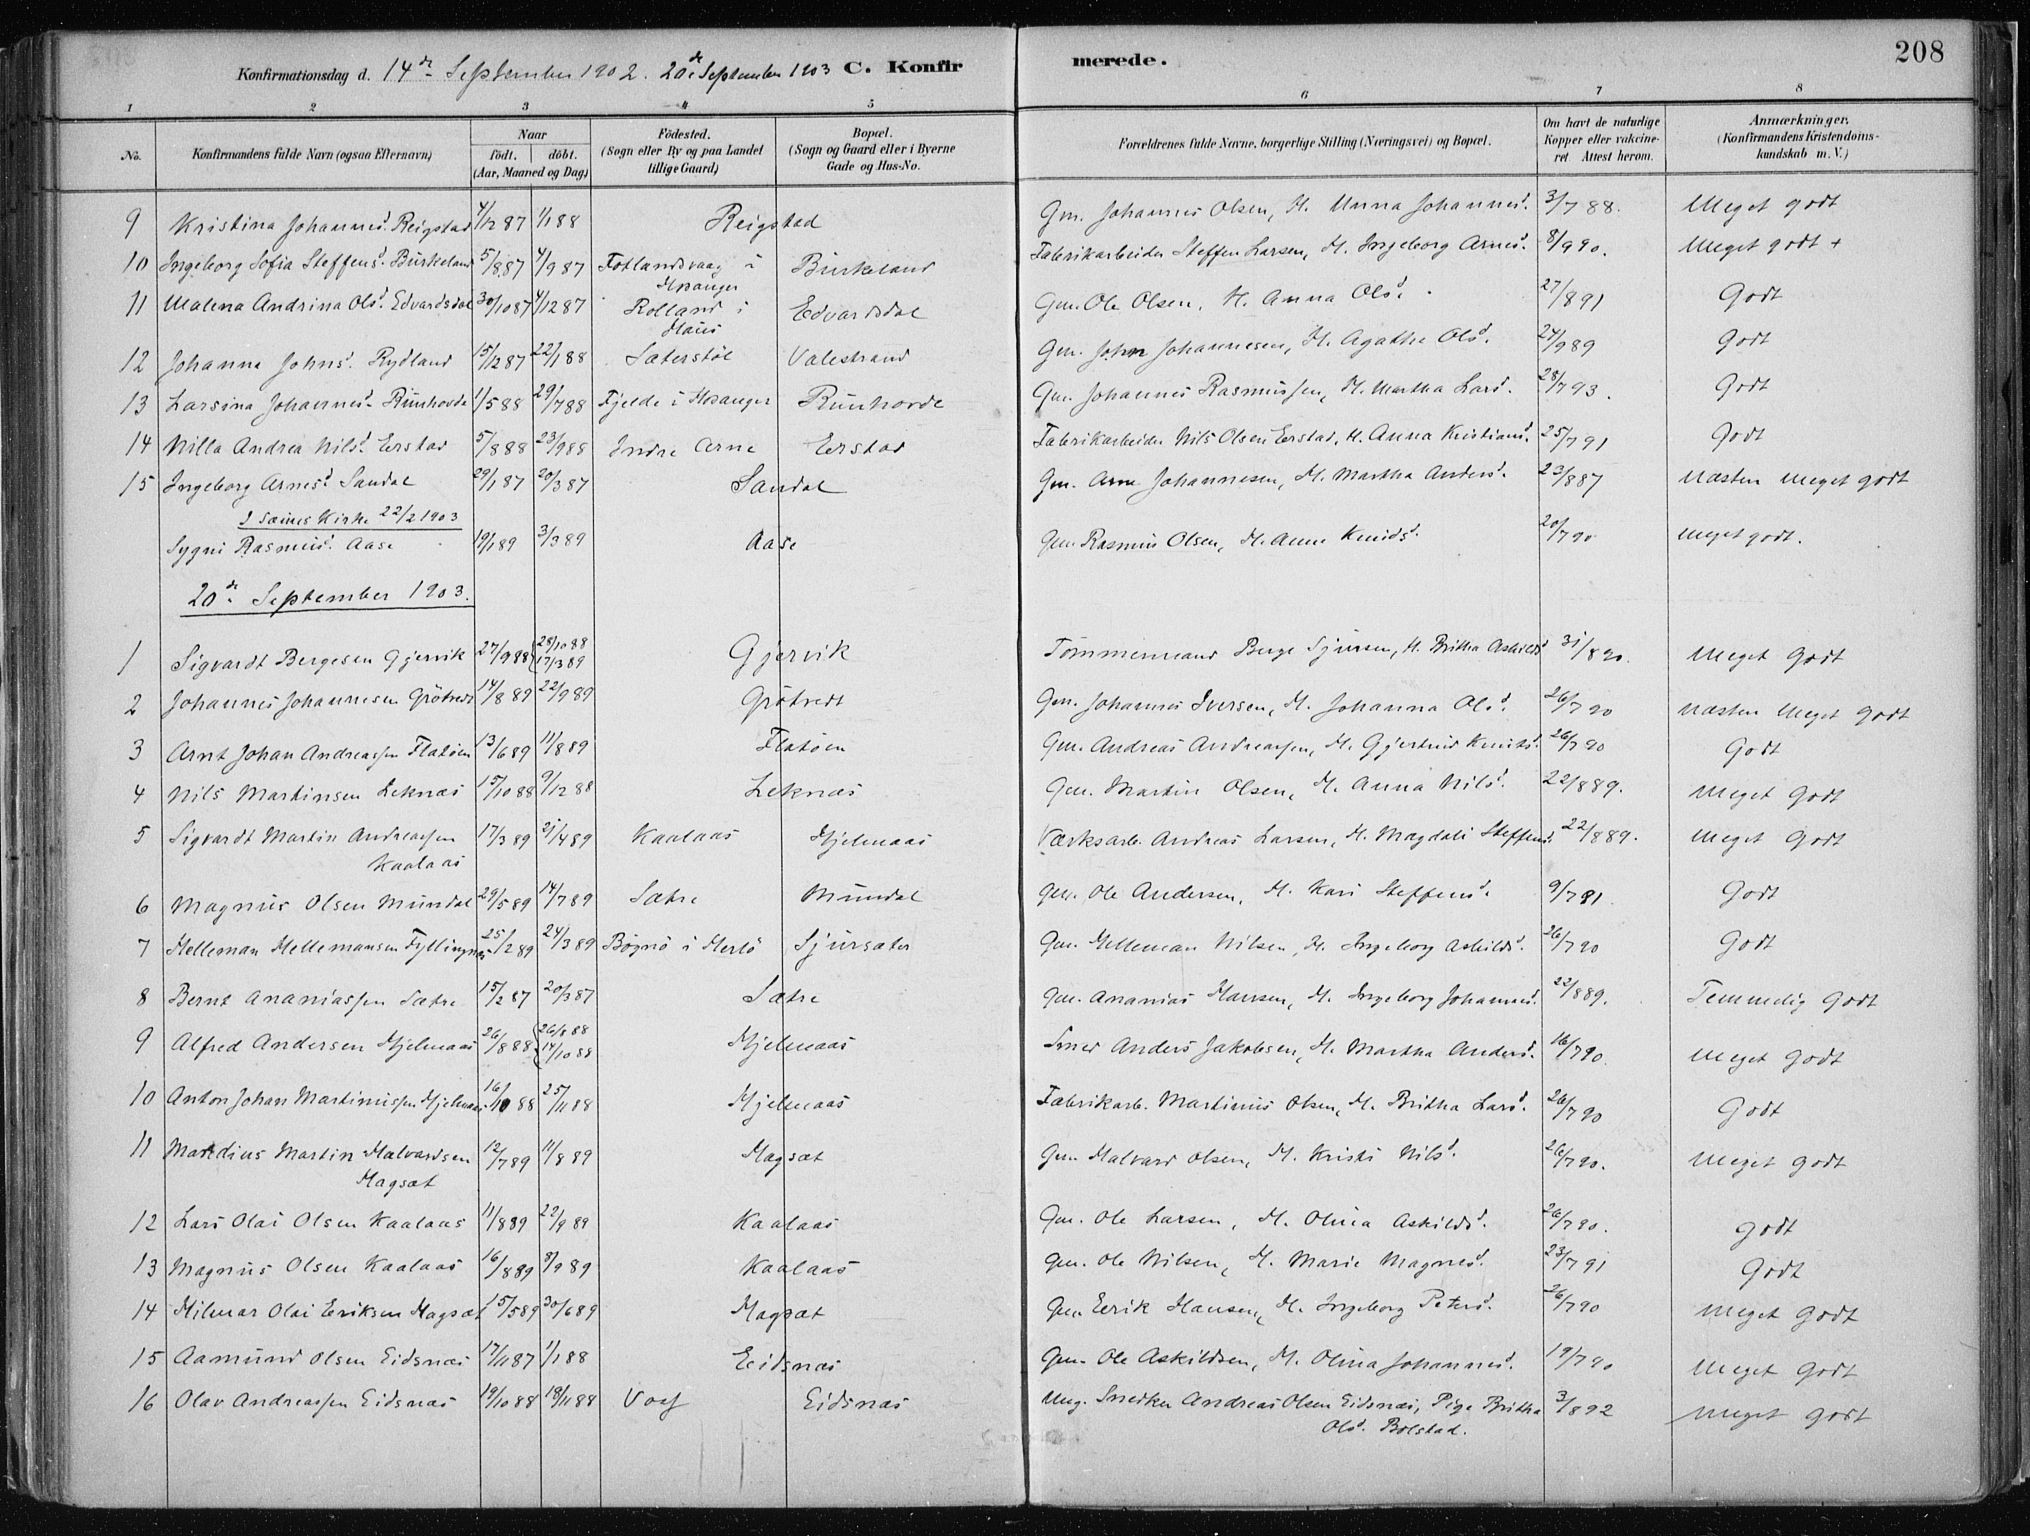 208
Konfirmationsdag d. 14de September 1902. 20de September 1903 C. Konfir merede.
1 2 3 4 5 6 7 8
No. Konfirmandens fulde Navn (ogsaa Efternavn) Naar födt. döbt. (Aar, Maaned og Dag) Födested. (Sogn eller By og paa Landet tillige Gaard) Bopæl. (Sogn og Gaard eller i Byerne Gade og Hus-No. Forældrenes fulde Navne, borgerlige Stilling (Næringsvei) og Bopæl. Om havt de naturlige Kopper eller vakcineret Attest herom. Anmærkninger. (Konfirmandens Kristendomskundskab m. V.)
9 Kristina Johannesd. Reigstad 4/12 87 1/1 88 Reigstad Gm. Johannes Olsen, H. Unna Johannesd. 3/7 88. Meget godt
10 Ingeborg Sofia Steffensd. Birkeland 5/8 87 4/9 87 Fotlandsvaag i Hosanger Birkeland Fabrikarbeider Steffen Larsen, H. Ingeborg Arnesd. 8/9 90. Meget godt +
11 Malena Andrina Olsd. Edvardsdal 30/10 87 4/12 87 Rolland i Haus Edvardsdal Gm. Ole Olsen, H. Anna Olsd. 27/8 91 Godt
12 Johanna Johnsd. Rydland 15/12 87 22/1 88 Sæterstöl Valestrand Gm. John Johannesen, H. Agathe Olsd. 24/9 89 Godt
13 Larsina Johannesd. Runhovde 11/5 88 29/7 88 Fjelde i Hosanger Runhovde Gm. Johannes Rasmussen, H. Martha Larsd. 28/7 93. Godt
14 Nilla Andrea Nilsd. Erstad 5/8 88 23/9 88 Indre Arne Erstad Fabrikarbeider Nils Olsen Erstad, H. Anna Kristiansd. 25/7 91 Godt
15 Ingeborg Arnesd. Sandal 29/1 87 20/3 87 Sandal Gm. Arne Johannesen, H. Martha Andersd. 23/8 87 Næsten Meget godt
I Kirke 22/2 1903
Sygni Rasmusd. Aase 19/1 89 3/3 89 Aase Gm. Rasmus Olsen, H. Anne Knudsd. 20/7 90 Meget godt.
20de September 1903.
1 Sigvardt Bergesen Gjervik 27/9 88 28/10 88 17/3 89 Gjervik Tömmermand Berge Sjursen, H. Britha Askildsd 31/8 90. Meget Godt
2 Johannes Johannesen Grötvedt 14/8 89 22/9 89 Grötvedt Gm. Johannes Iversen, H. Johanna Olsd. 26/7 90 Næsten Meget Godt
3 Arnt Johan Andreassen Flatöen 13/6 89 11/8 89 Flatöen Gm. Andreas Andreassen, H. Gjertrud Knutsd. 26/7 90 Godt
4 Nils Martinsen Leknæs 15/10 88 9/12 88 Leknæs Gm. Martin Olsen, H. Anna Nilsd. 22/8 89. Meget Godt
5 Sigvardt Martin Andreassen Kaalaas 17/3 89 21/4 89 Kaalaas Hjelmaas Værksarb. Andreas Larsen, H. Magdali Steffensd. 22/8 89. Meget Godt
6 Magnus Olsen Mundal 29/5 89 14/7 89 Sætre Mundal Gm. Ole Andersen, H. Kari Steffensd. 9/7 91 Godt
7 Helleman Hellemansen Fyllingnæs 25/1 89 24/3 89 Bøgnö i Herlö Sjursæter Gm. Helleman Nilsen, H. Ingeborg Askildsd. 26/7 90 Godt
8 Bernt Ananiassen Sætre 15/2 87 20/3 87 Sætre Gm. Ananias Hansen, H. Ingeborg Johannesd. 22/8 89. Temmelig Godt
9 Alfred Andersen Hjelmaas 26/8 88 26/8 88 14/10 88 Hjelmaas Smed Anders Jakobsen, H. Martha Andersd. 16/7 90. Meget Godt
10 Anton Johan Martinussen Hjelmaas 16/10 88 25/11 88 Hjelmaas Fabrikarb. Martinus Olsen, H. Britha Larsd. 26/7 90 Godt
11 Mandius Martin Halvardsen Hagsæt 12/7 89 11/8 89 Hagsæt Gm. Halvard Olsen, H. Kristi Nilsd. 26/7 90. Meget Godt
12 Lars Olai Olsen Kaalaas 11/8 89 22/9 89 Kaalaas Gm. Ole Larsen, H. Olina Askildsd. 26/7 90. Godt
13 Magnus Olsen Kaalaas 16/8 89 8/9 89 Kaalaas Gm. Ole Nilsen, H. Marie Magnesd. 23/7 91 Godt
14 Hilmar Olai Eriksen Hagsæt 15/5 89 30/6 89 Hagsæt Gm. Eerik Hansen, H. Ingeborg Petersd. 26/7 90 Meget Godt
15 Aamund Olsen Eidsnæs 17/11 87 1/1 88 Eidsnæs Gm. Ole Askildsen, H. Olina Johannesd. 19/7 90 Meget Godt
16 Olav Andreassen Eidsnæs 19/10 88 18/11 88 Voss Eidsnæs Ung. Snedker Andreas Olsen Eidsnæs, Pige Britha Olsd. Bolstad. 3/8 92 Meget Godt